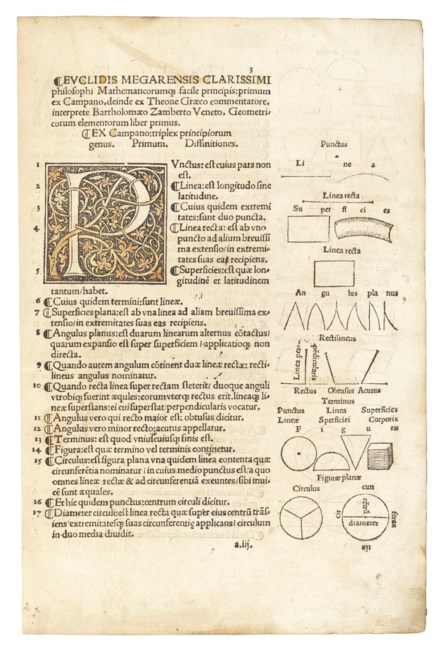 ¶EVCLIDIS MEGARENSIS CLARISSIMI
philosophi Mathematicorumq; facile principis: primum
ex Campano, deinde ex Theone Græco commentatore,
interprete Bartholomæo Zamberto Veneto, Geometri-
corum elementorum liber primus.
¶EX Campano: triplex principiorum
genus. Primum. Diffinitiones.
1 PVnctus: est cuius pars non
est.
2 ¶Linea: est longitudo sine
latitudine.
3 ¶Cuius quidem extremi
tates: sunt duo puncta.
4 ¶Linea recta: est ab vno
puncto ad alium breuissi
ma extensio/in extremi-
tates suas eas recipiens.
5 ¶Superficies: est quæ lon-
gitudinē et latitudinem
tantum/habet.
6 ¶Cuius quidem termini: sunt lineæ.
7 ¶Superficies plana: est ab vna linea ad aliam breuissima ex-
tensio/in extremitates suas eas recipiens.
8 ¶Angulus planus: est duarum linearum alternus cōtactus/
quarum expansio est super superficiem/applicatioq; non
directa.
9 ¶Quando autem angulum cōtinent duæ lineæ rectæ: recti-
lineus angulus nominatur.
10 ¶Quando recta linea super rectam steterit/ duoque anguli
vtrobiq; fuerint æquales: eorum vterq; rectus erit. lineaq; li-
neæ superstans: ei cui superstat/perpendicularis vocatur.
11 ¶Angulus vero qui recto maior est: obtusus dicitur.
12 ¶Angulus vero minor recto: acutus appellatur.
13 ¶Terminus: est quod vniuscuiusq; finis est.
14 ¶Figura: est quæ termino vel terminis continetur.
15 ¶Circulus: est figura plana vna quidem linea contenta quæ
circunferētia nominatur/in cuius medio punctus est/a quo
omnes lineæ rectæ & ad circunferentiā exeuntes/sibi inui-
cē sunt æquales.
16 ¶Et hic quidem punctus: centrum circuli dicitur.
17 ¶Diameter circuli: est linea recta quæ super eius centrū trās-
iens/extremitatesq; suas circunferentię applicans/circulum
in duo media diuidit.
a.iij.
Punctus
Li ne a
Linea recta
Su per fi ci es
Linea recta
An gu lus pla nus
Rectilineus
Linea per-
pēdicularis
Rectus Obtusus Acutus
Terminus
Punctus Linea Superficies
Lineæ Superficiei Corporis
F i g u ra
Figuræ planæ
Circulus
cir
cun
feren
tia
cētrū
diameter